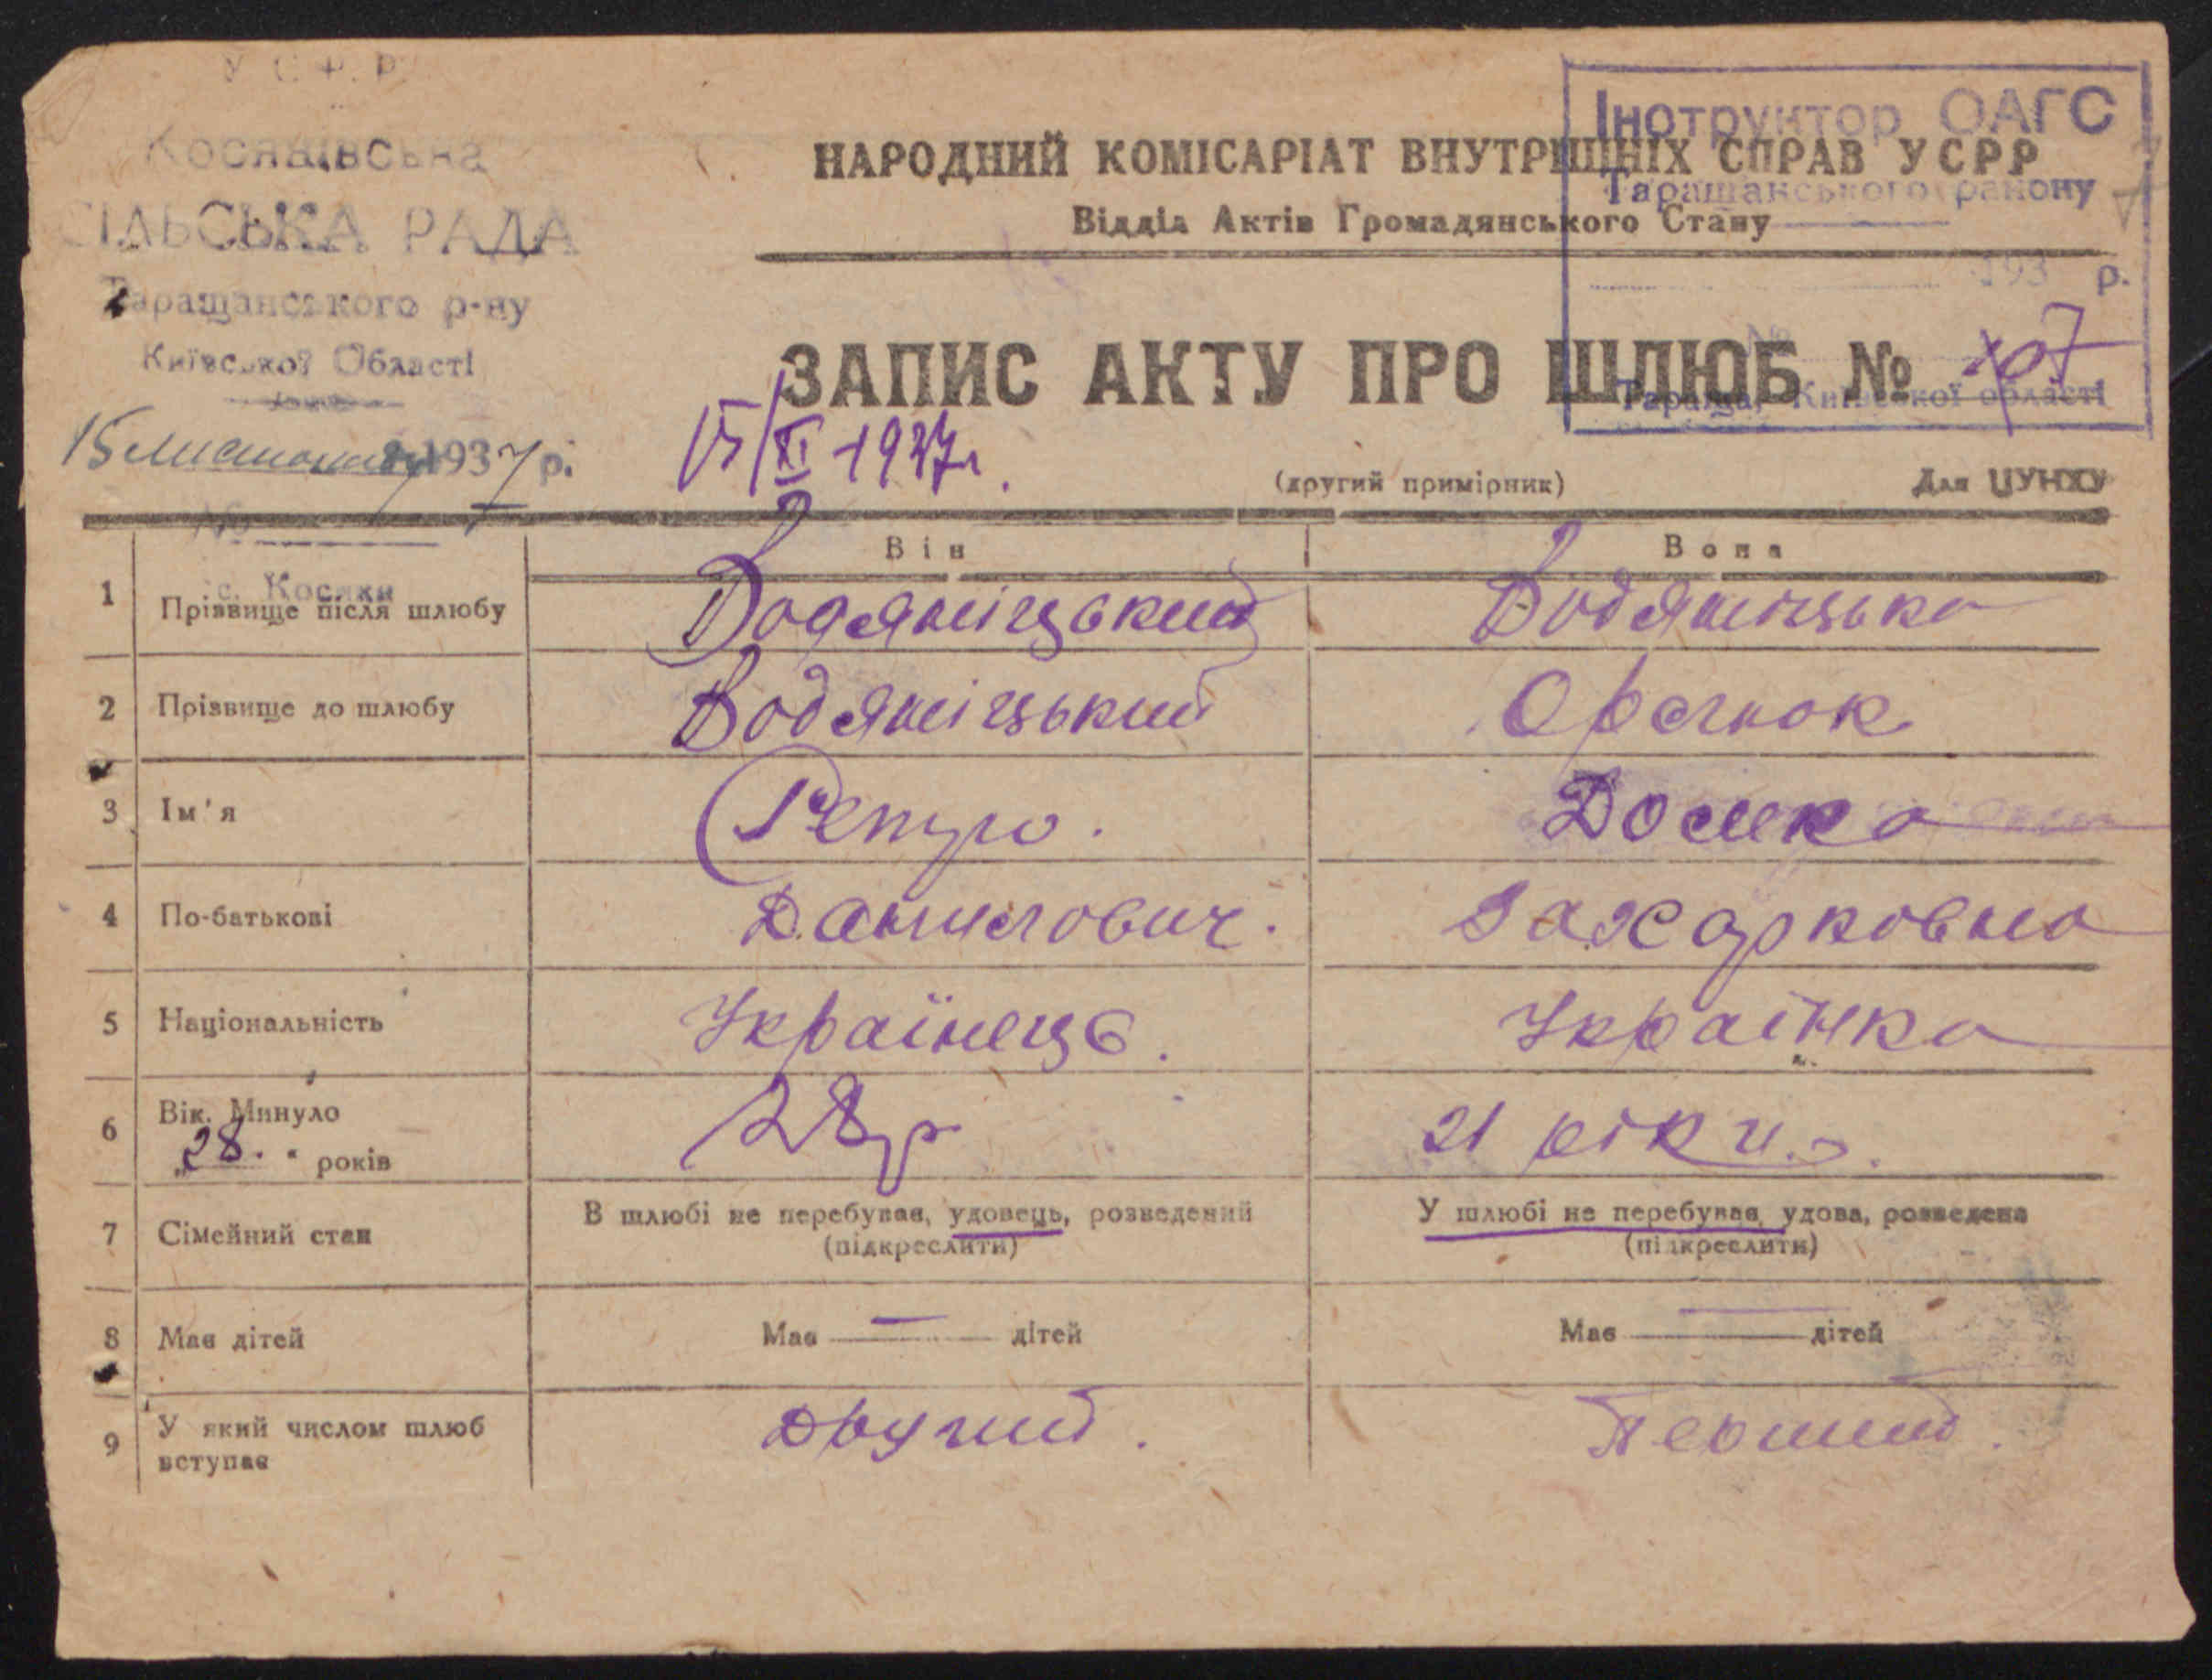 У С Р Р
Косяківська
СІЛЬСЬКА РАДА
Таращанського р-ну
Київської Області
15 листопада 1937 р.
№
с. Косяки
Інструктор ОАГС
Таращанського району
193 р.
№
Тараща, Київської області
НАРОДНИЙ КОМІСАРІАТ ВНУТРІШНІХ СПРАВ УСРР
Відділ Актів Громадянського Стану
ЗАПИС АКТУ ПРО ШЛЮБ №
15/XI 1937 р.
(другий примірник) Для ЦУНХУ
Він Вона
1 Прізвище після шлюбу Водяніцький Водяніцька
2 Прізвище до шлюбу Водяніцький
3 Ім'я Петро. Домка
4 По-батькові Данилович. Захарковна
5 Національність Українець. Українка
6 Вік. Минуло „28." років 28 р 21 рік
7 Сімейний стан В шлюбі не перебував, удовець, розведений У шлюбі не перебувая, удова, розведена
(підкреслити) (підкреслити)
8 Має дітей Має — дітей Має — дітей
9 У який числом шлюб вступає Другий. Перший.